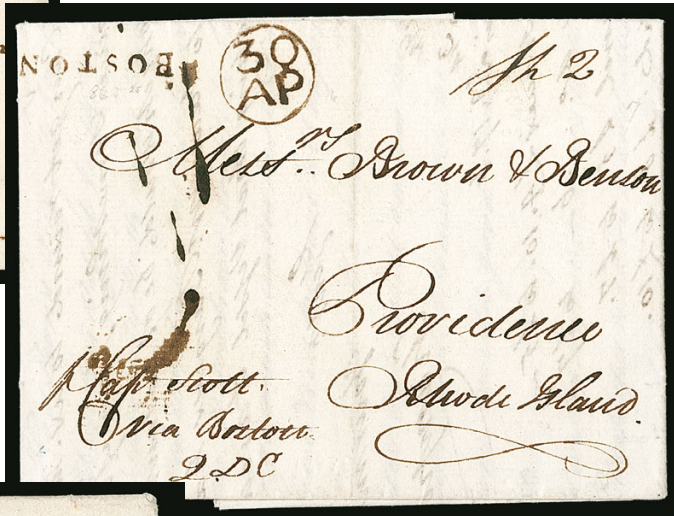 BOSTON
30
AP
Sh 2
Messrs. Brown & Benson
Providence
Rhode Island.
p Capt Scott.
via Boston
2 D C